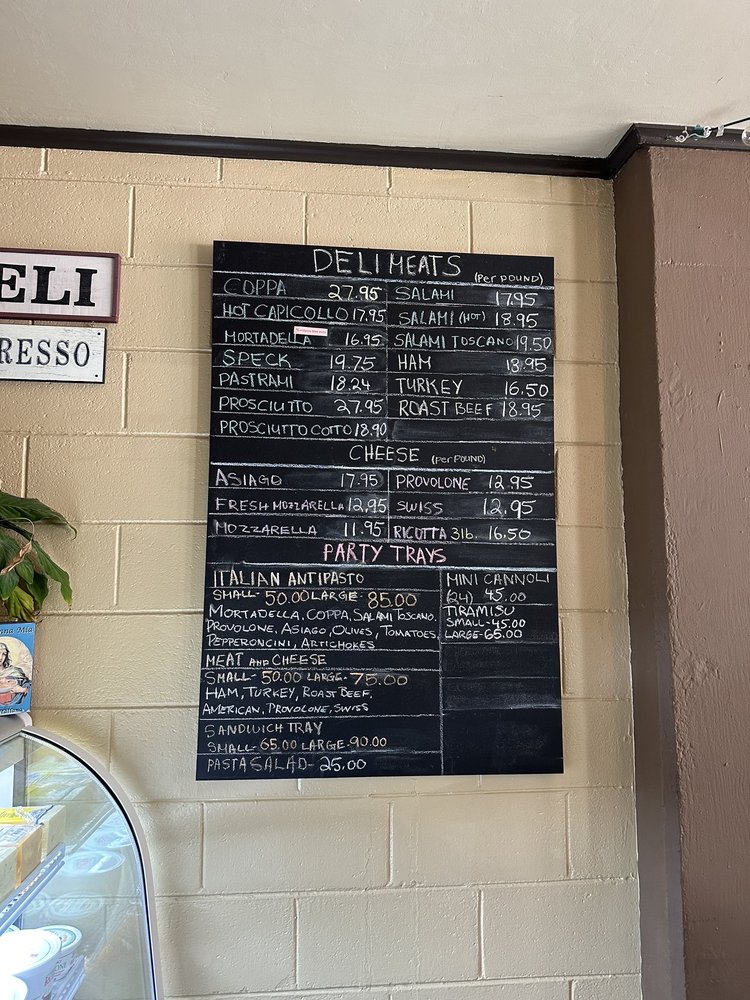 ELI
RESSO
DELI MEATS (PER POUND)
COPPA 27.95
HOT CAPICOLLO 17.95
MORTADELLA 16.95
SPECK 19.75
PASTRAMI 18.24
PROSCIUTTO 27.95
PROSCIUTTO COTTO 18.90
SALAMI 17.95
SALAMI (HOT) 18.95
SALAMI TOSCANO 19.50
HAM 18.95
TURKEY 16.50
ROAST BEEF 18.95
CHEESE (PER POUND)
ASIAGO 17.95
FRESH MOZZARELLA 12.95
MOZZARELLA 11.95
PROVOLONE 12.95
SWISS 12.95
RICOTTA 3lb. 16.50
PARTY TRAYS
ITALIAN ANTIPASTO
SMALL- 50.00 LARGE- 85.00
MORTADELLA, COPPA, SALAMI TOSCANO,
PROVOLONE, ASIAGO, OLIVES, TOMATOES,
PEPPERONCINI, ARTICHOKES
MEAT AND CHEESE
SMALL- 50.00 LARGE- 75.00
HAM, TURKEY, ROAST BEEF,
AMERICAN, PROVOLONE, SWISS
SANDWICH TRAY
SMALL- 65.00 LARGE- 90.00
PASTA SALAD- 25.00
MINI CANNOLI
(24) 45.00
TIRAMISU
SMALL-45.00
LARGE-65.00